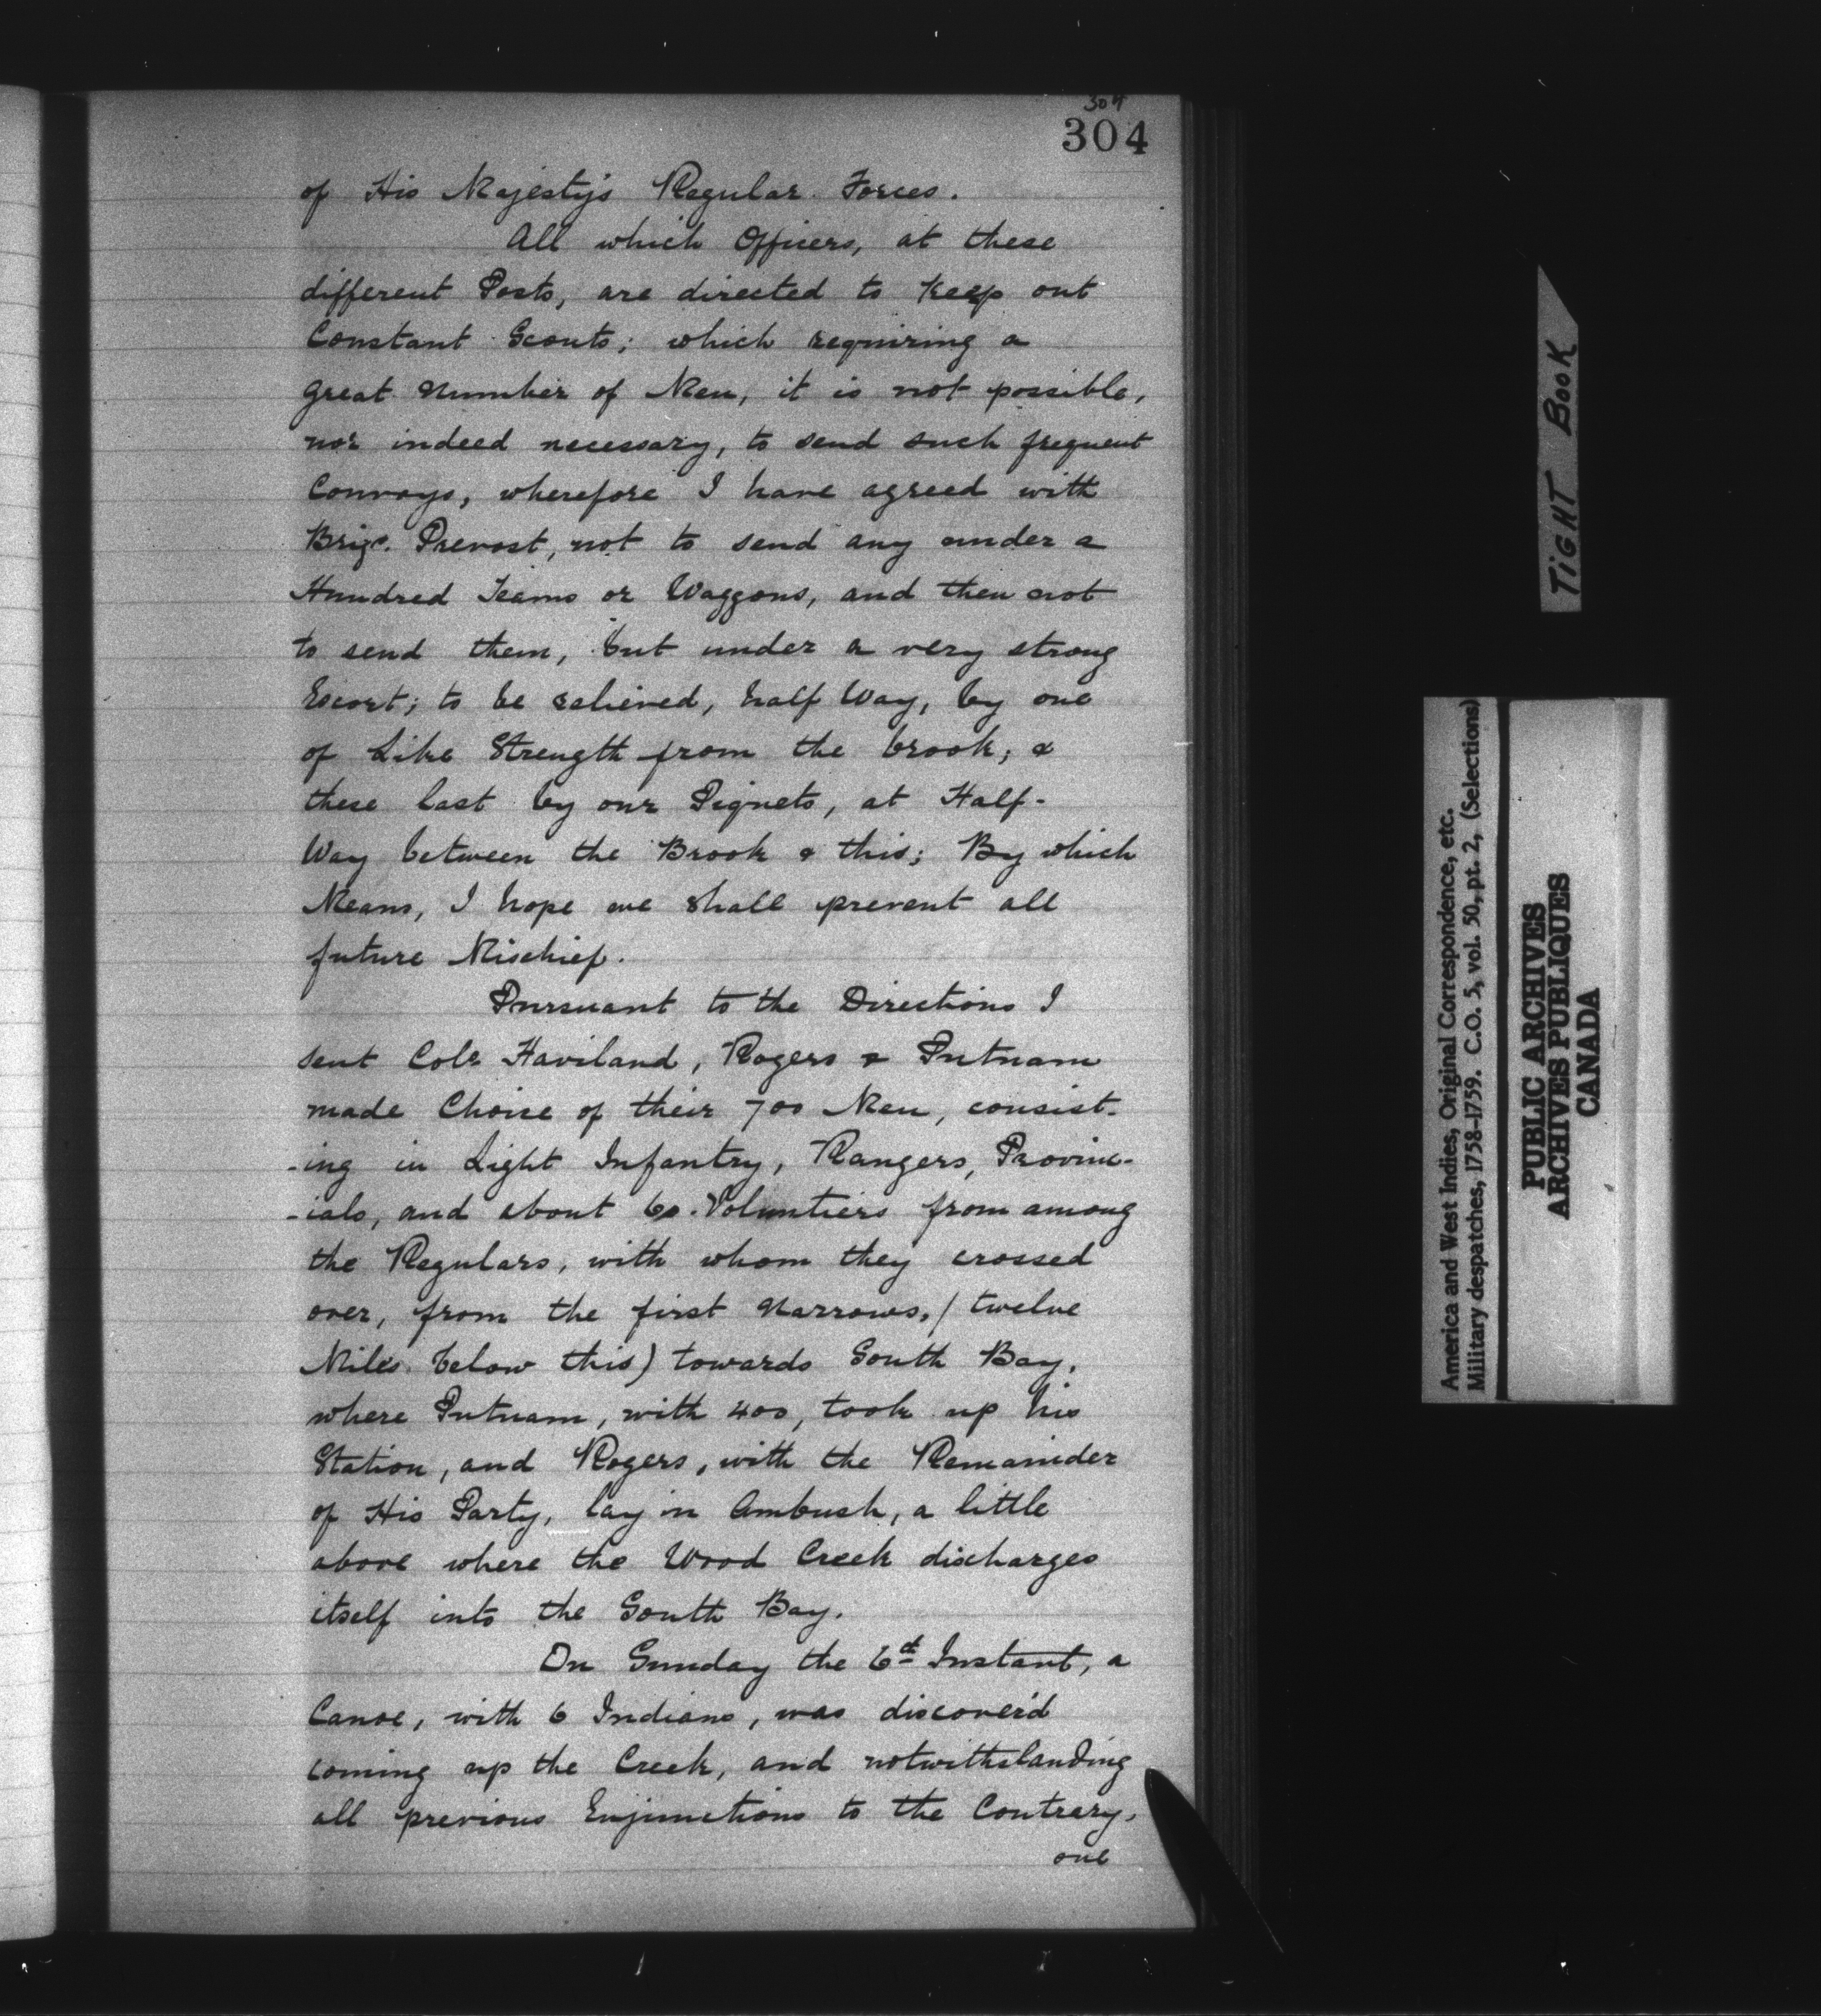 304
304
of His Majesty's Regular Forces.
All which Officers, at these
different Posts, are directed to keep out
Constant Scouts; which requiring a
great number of Men, it is not possible,
nor indeed necessary, to send such frequent
Convoys, wherefore I have agreed with
Brigr. Prevost, not to send any under a
Hundred Teams or Waggons, and then not
to send them, but under a very strong
Escort; to be relieved, half Way, by one
of Like Strength from the brook; &
these last by our Piquets, at Half-
Way between the Brook & this; By which
Means, I hope we shall prevent all
future Mischief.
Pursuant to the Directions I
sent Colr Haviland, Rogers & Putnam
made Choice of their 700 Men, consist-
-ing in Light Infantry, Rangers, Provinc-
-ials, and about 60 Voluntiers from among
the Regulars, with whom they crossed
over, from the first Narrows, / twelve
Miles below this) towards South Bay,
where Putnam, with 400, took up his
Station, and Rogers, with the Remainder
of His Party, lay in Ambush, a little
above where the Wood Creek discharges
itself into the South Bay.
On Sunday the 6th Instant, a
Canoe, with 6 Indians, was discover'd
coming up the Creek, and notwithstanding
all previous Enjunctions to the Contrary,
one
TiGHT BOOK
America and West Indies, Original Correspondence, etc.
Military despatches, 1758-1759. C.O. 5, vol. 50, pt. 2, (Selections)
PUBLIC ARCHIVES
ARCHIVES PUBLIQUES
CANADA